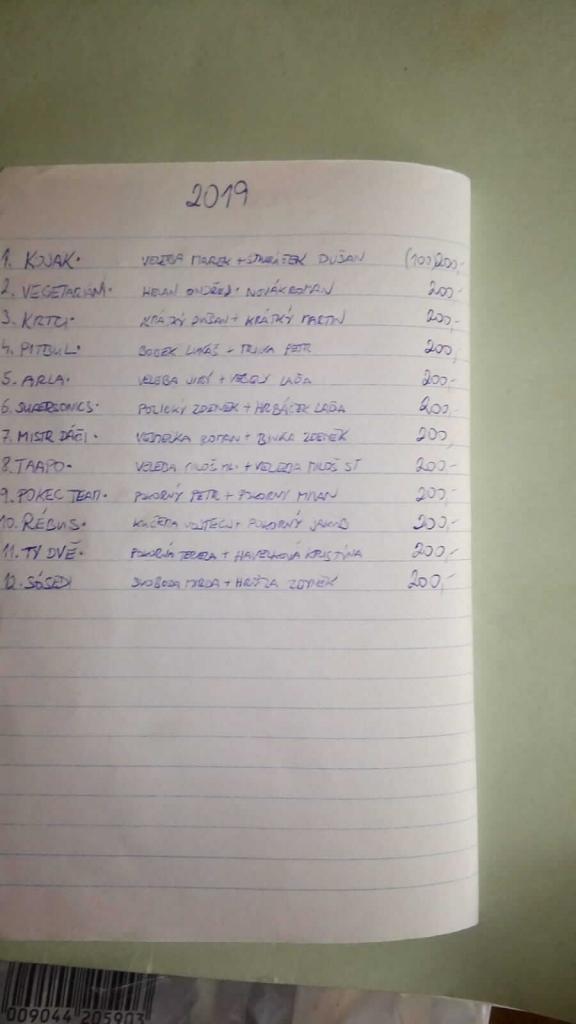 2019
1. KOJAK. VELEBA MAREK + DUŠAN (100)200,-
2. VEGETARIÁNI. ONDŘEJ. NOVÁK ROMAN 200,-
3. KRTCI. KRÁTKÝ DUŠAN + KRÁTKÝ MARTIN 200,-
4. PITBUL. LUKÁŠ + PETR 200,-
5. ARLA. VELEBA JIŘÍ + LAĎA 200,-
6. SUPERSONICS. POLICKÝ ZDENEK + HRBÁČEK LAĎA 200,-
7. MISTR DÁČI. ROMAN + ZDENĚK 200,-
8. TAAPO. VELEBA MILOŠ ML. + VELEBA MILOŠ ST 200,-
9. POKEC TEAM. POKORNÝ PETR + POKORNÝ MILAN 200,-
10. RÉBUS. KUČERA VOJTĚCH + POKORNÝ JAKUB 200,-
11. TY DVĚ. POKORNÁ TEREZA + HAVELKOVÁ KRISTÝNA 200,-
12. SÓSEDI SVOBODA + ZDENEK 200,-
009044 205903